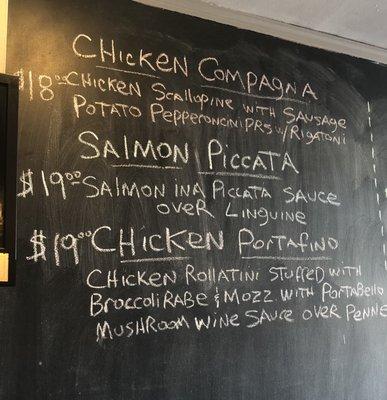 CHICKEN COMPAGNA
$18.00 CHICKEN SCALLOPINE WITH SAUSAGE
POTATO PEPPERONCINI PRS W/ RIGATONI
SALMON PICCATA
$19.00 SALMON IN A PICCATA SAUCE
OVER LINGUINE
$19.00 CHICKEN PORTAFINO
CHICKEN ROLLATINI STUFFED WITH
BROCCOLI RABE & MOZZ WITH PORTABELLO
MUSHROOM WINE SAUCE OVER PENNE